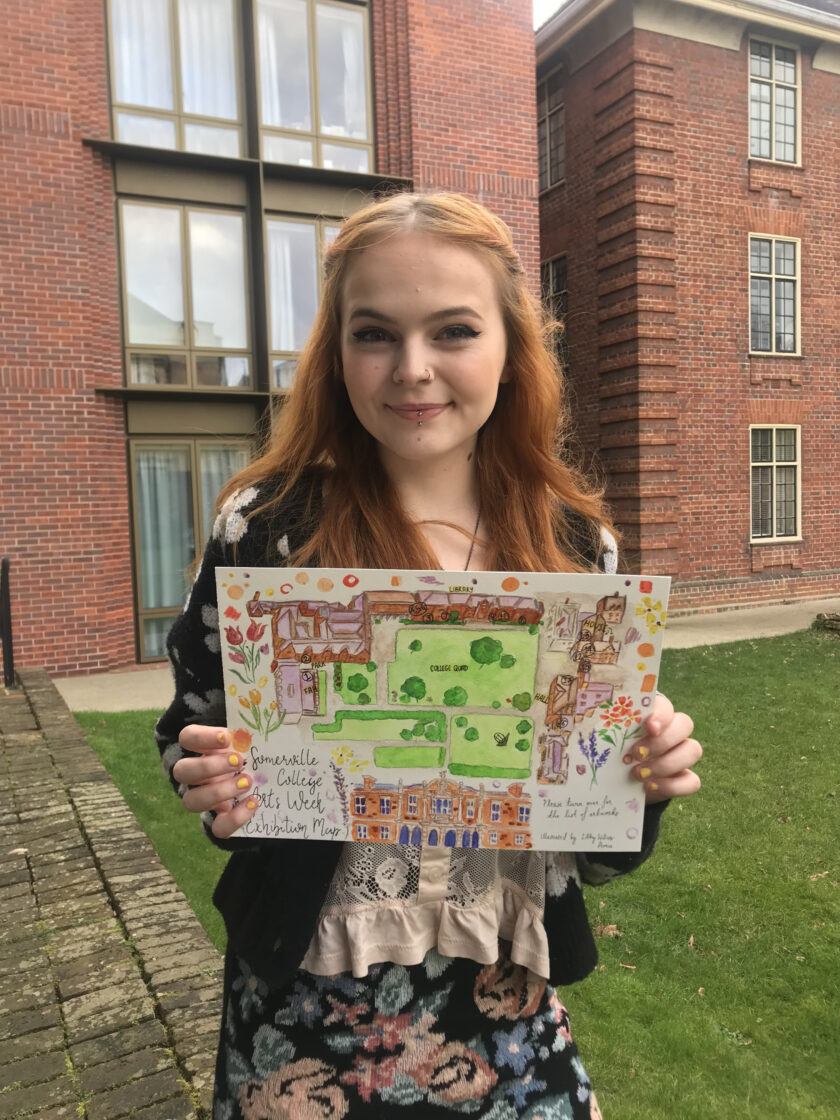 LIBRARY
HOUSE
PARK
COLLEGE QUAD
HALL
Somerville
College
Arts Week
(Exhibition Map)
Please turn over for
the list of artworks
Illustrated by Libby